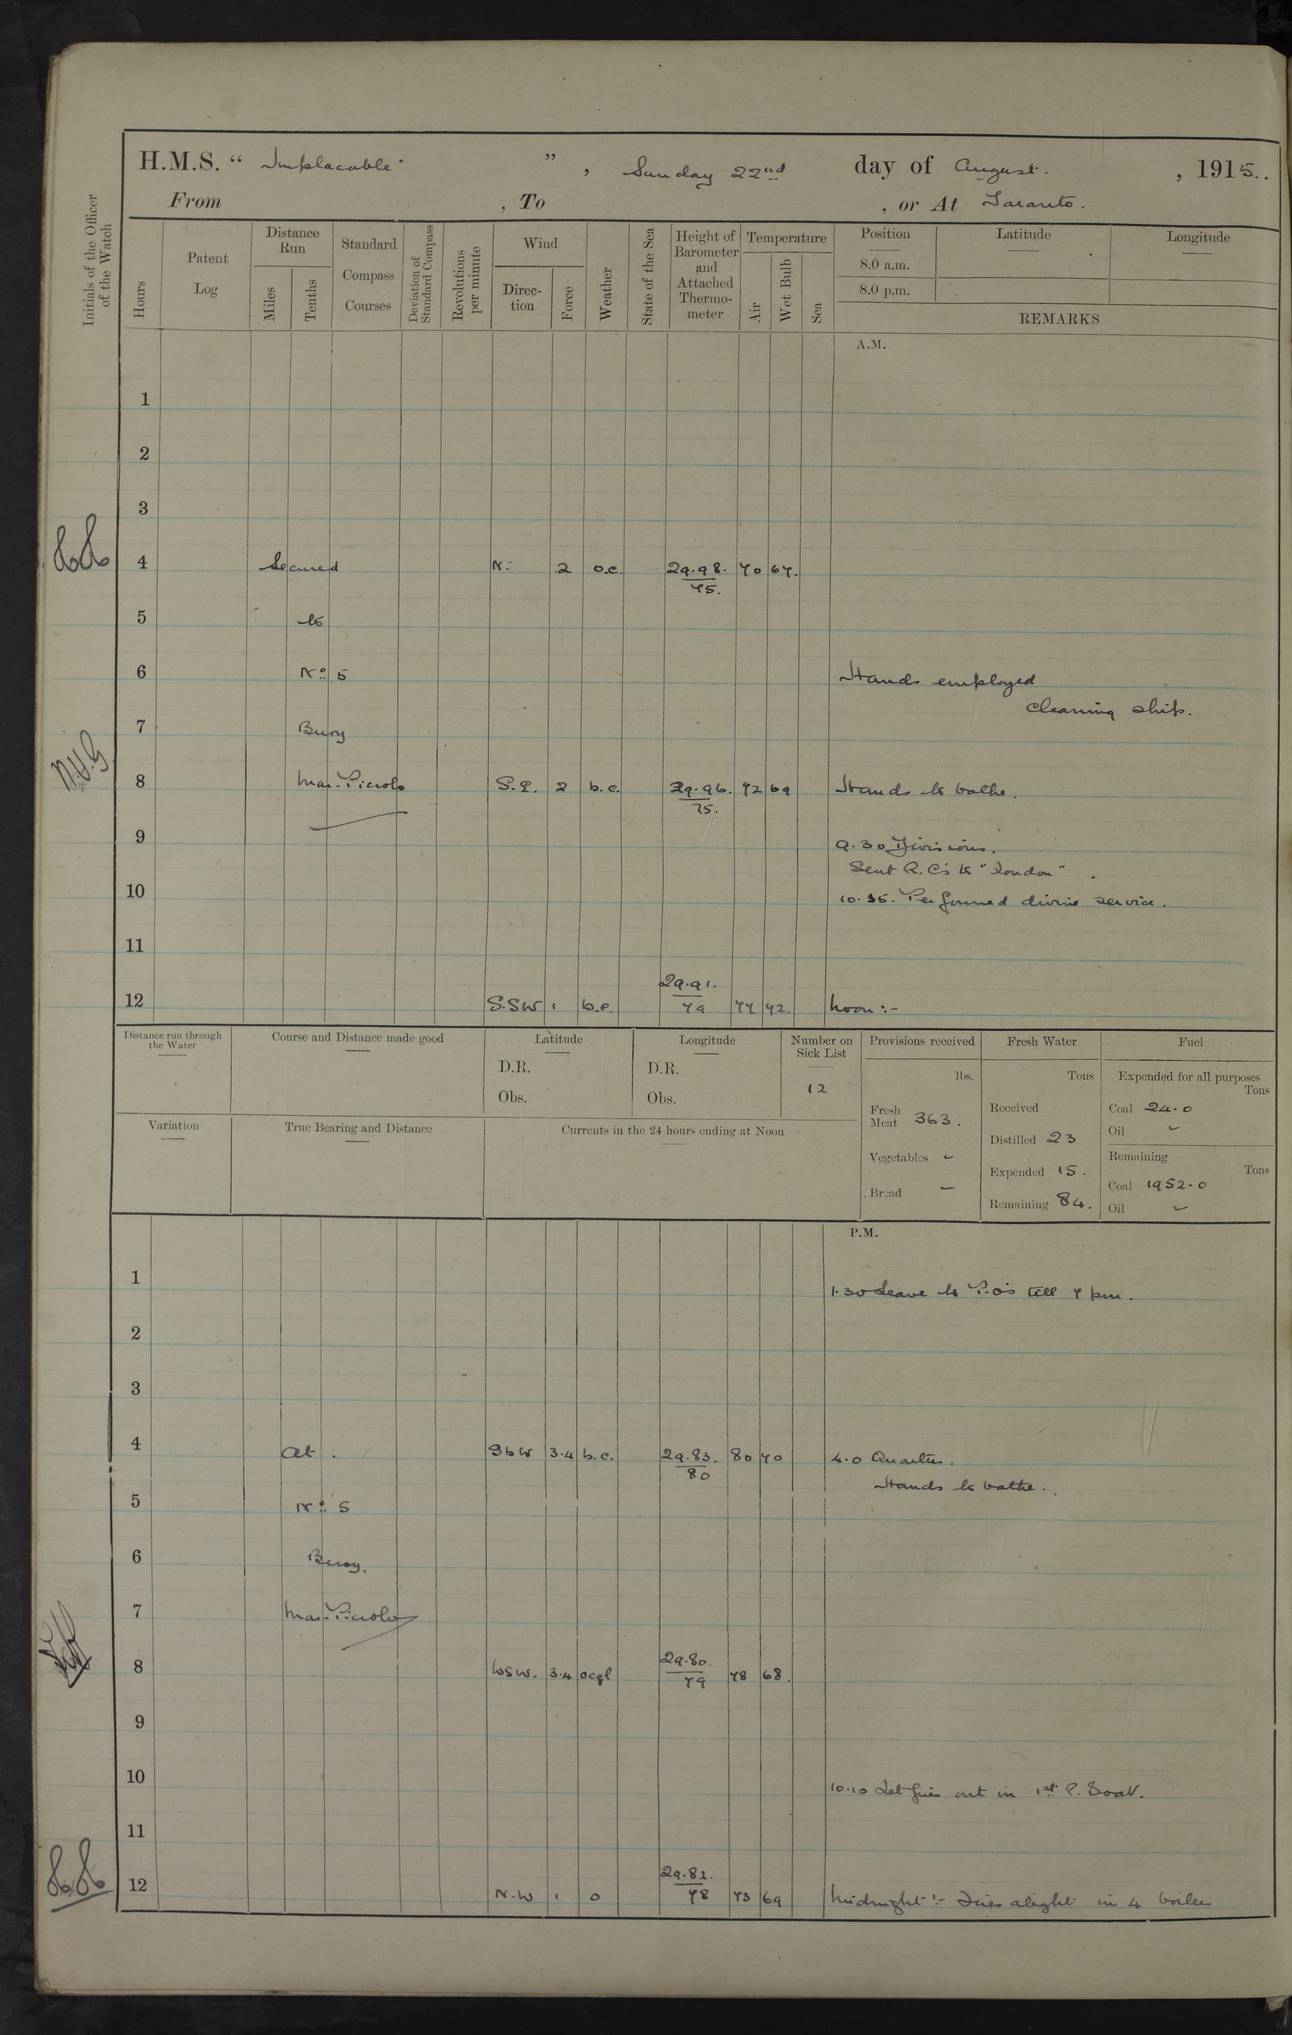 H.M.S. "Implacable", Sunday 22nd day of August, 1915.
From , To , or At Taranto.
Initials of the Officer of the Watch
Hours
Patent Log
Distance Run
Miles
Tenths
Standard Compass Courses
Deviation of Standard Compass
Revolutions per minute
Wind
Direction
Force
Weather
State of the Sea
Height of Barometer and Attached Thermometer
Temperature
Air
Wet Bulb
Sea
Position
Latitude
Longitude
8.0 a.m.
8.0 p.m.
REMARKS
A.M.
1
2
3
4 Secured N. 2 o.c. 29.98. 70 67.
75.
5 to
6 No 5 Hands employed
cleaning ship.
7 Buoy
8 Mar Piccolo S.E. 2 b.c. 29.96. 72 69 Hands to bathe.
75.
9 9.30 Divisions.
Sent R.C's to "London".
10 10.35. Performed divine service.
11
29.91.
12 S.SW 1 b.c. 79 77 72. Noon:-
Distance run through the Water
Course and Distance made good
Latitude
D.R.
Obs.
Longitude
D.R.
Obs.
Number on Sick List
12
Provisions received
lbs.
Fresh Meat 363.
Vegetables -
Bread -
Fresh Water
Tons
Received
Distilled 23
Expended 15.
Remaining 84.
Fuel
Expended for all purposes
Tons
Coal 24.0
Oil -
Remaining
Tons
Coal 1952.0
Oil -
Variation
True Bearing and Distance
Currents in the 24 hours ending at Noon
P.M.
1 1.30 Leave to P.O's till 7 pm.
2
3
4 At. SbW 3.4 b.c. 29.83. 80 70 4.0 Quarters.
80
Hands to bathe.
5 No 5
6 Buoy.
7 Mar Piccolo
29.80.
8 WSW. 3.4 ocql 79 78 68.
9
10 10.10 Let fires out in 1st P. Boat.
11
29.82.
12 N.W 1 o 78 73 69 Midnight:- Fires alight in 4 boilers